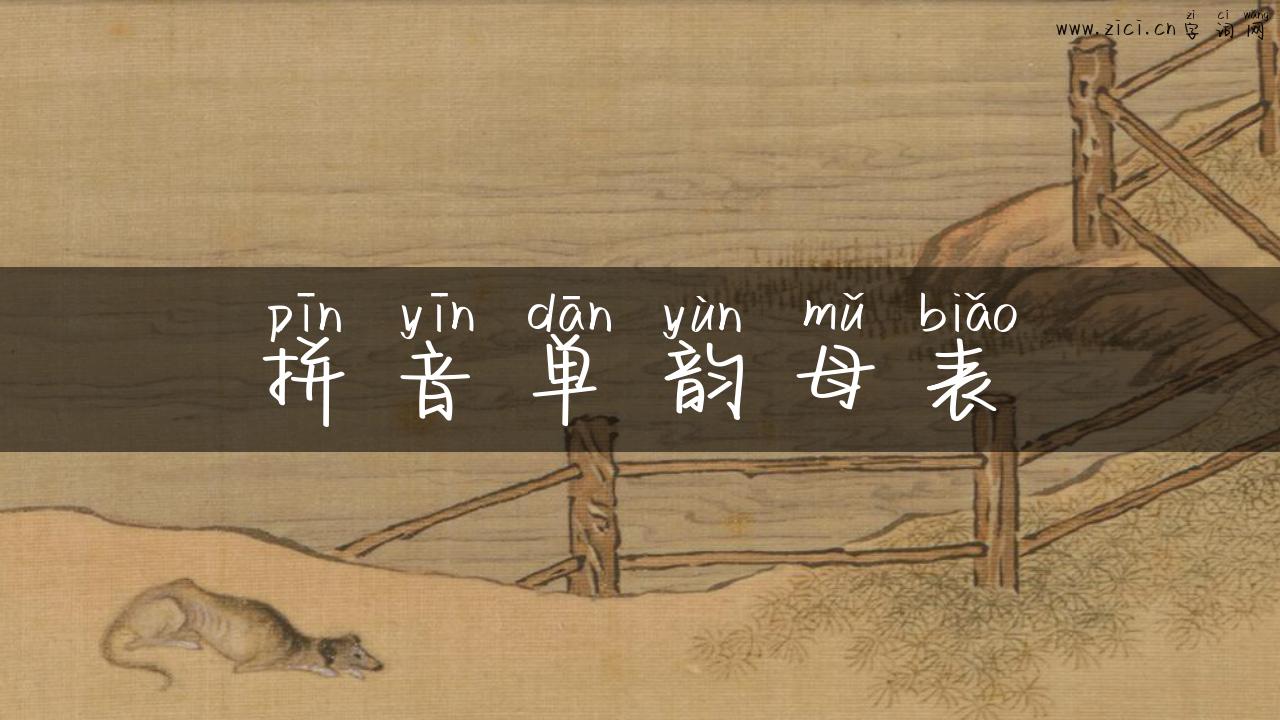 zì cí wǎng
www.zici.cn 字词网
pīn yīn dān yùn mǔ biǎo
拼音单韵母表